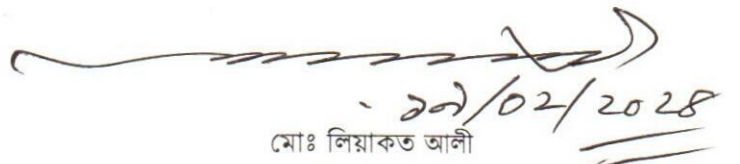 ১৭/০২/২০২৪
মোঃ লিয়াকত আলী